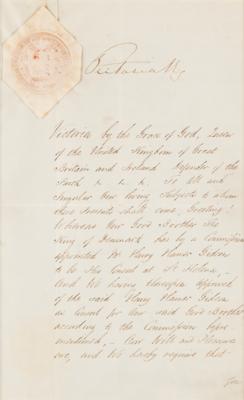 Victoria R
Victoria by the Grace of God, Queen
of the United Kingdom of Great
Britain and Ireland Defender of the
Faith &. &. &. To All and
Singular Our loving Subjects to whom
these Presents shall come, Greeting!
Whereas Our Good Brother the
King of Denmark has by a Commission
appointed Mr Henry
to be His Consul at St Helena,
And We having thereupon approved
of the said Henry
as Consul for Our said Good Brother
according to the Commission before
mentioned, – Our Will and Pleasure
are, and We hereby require that